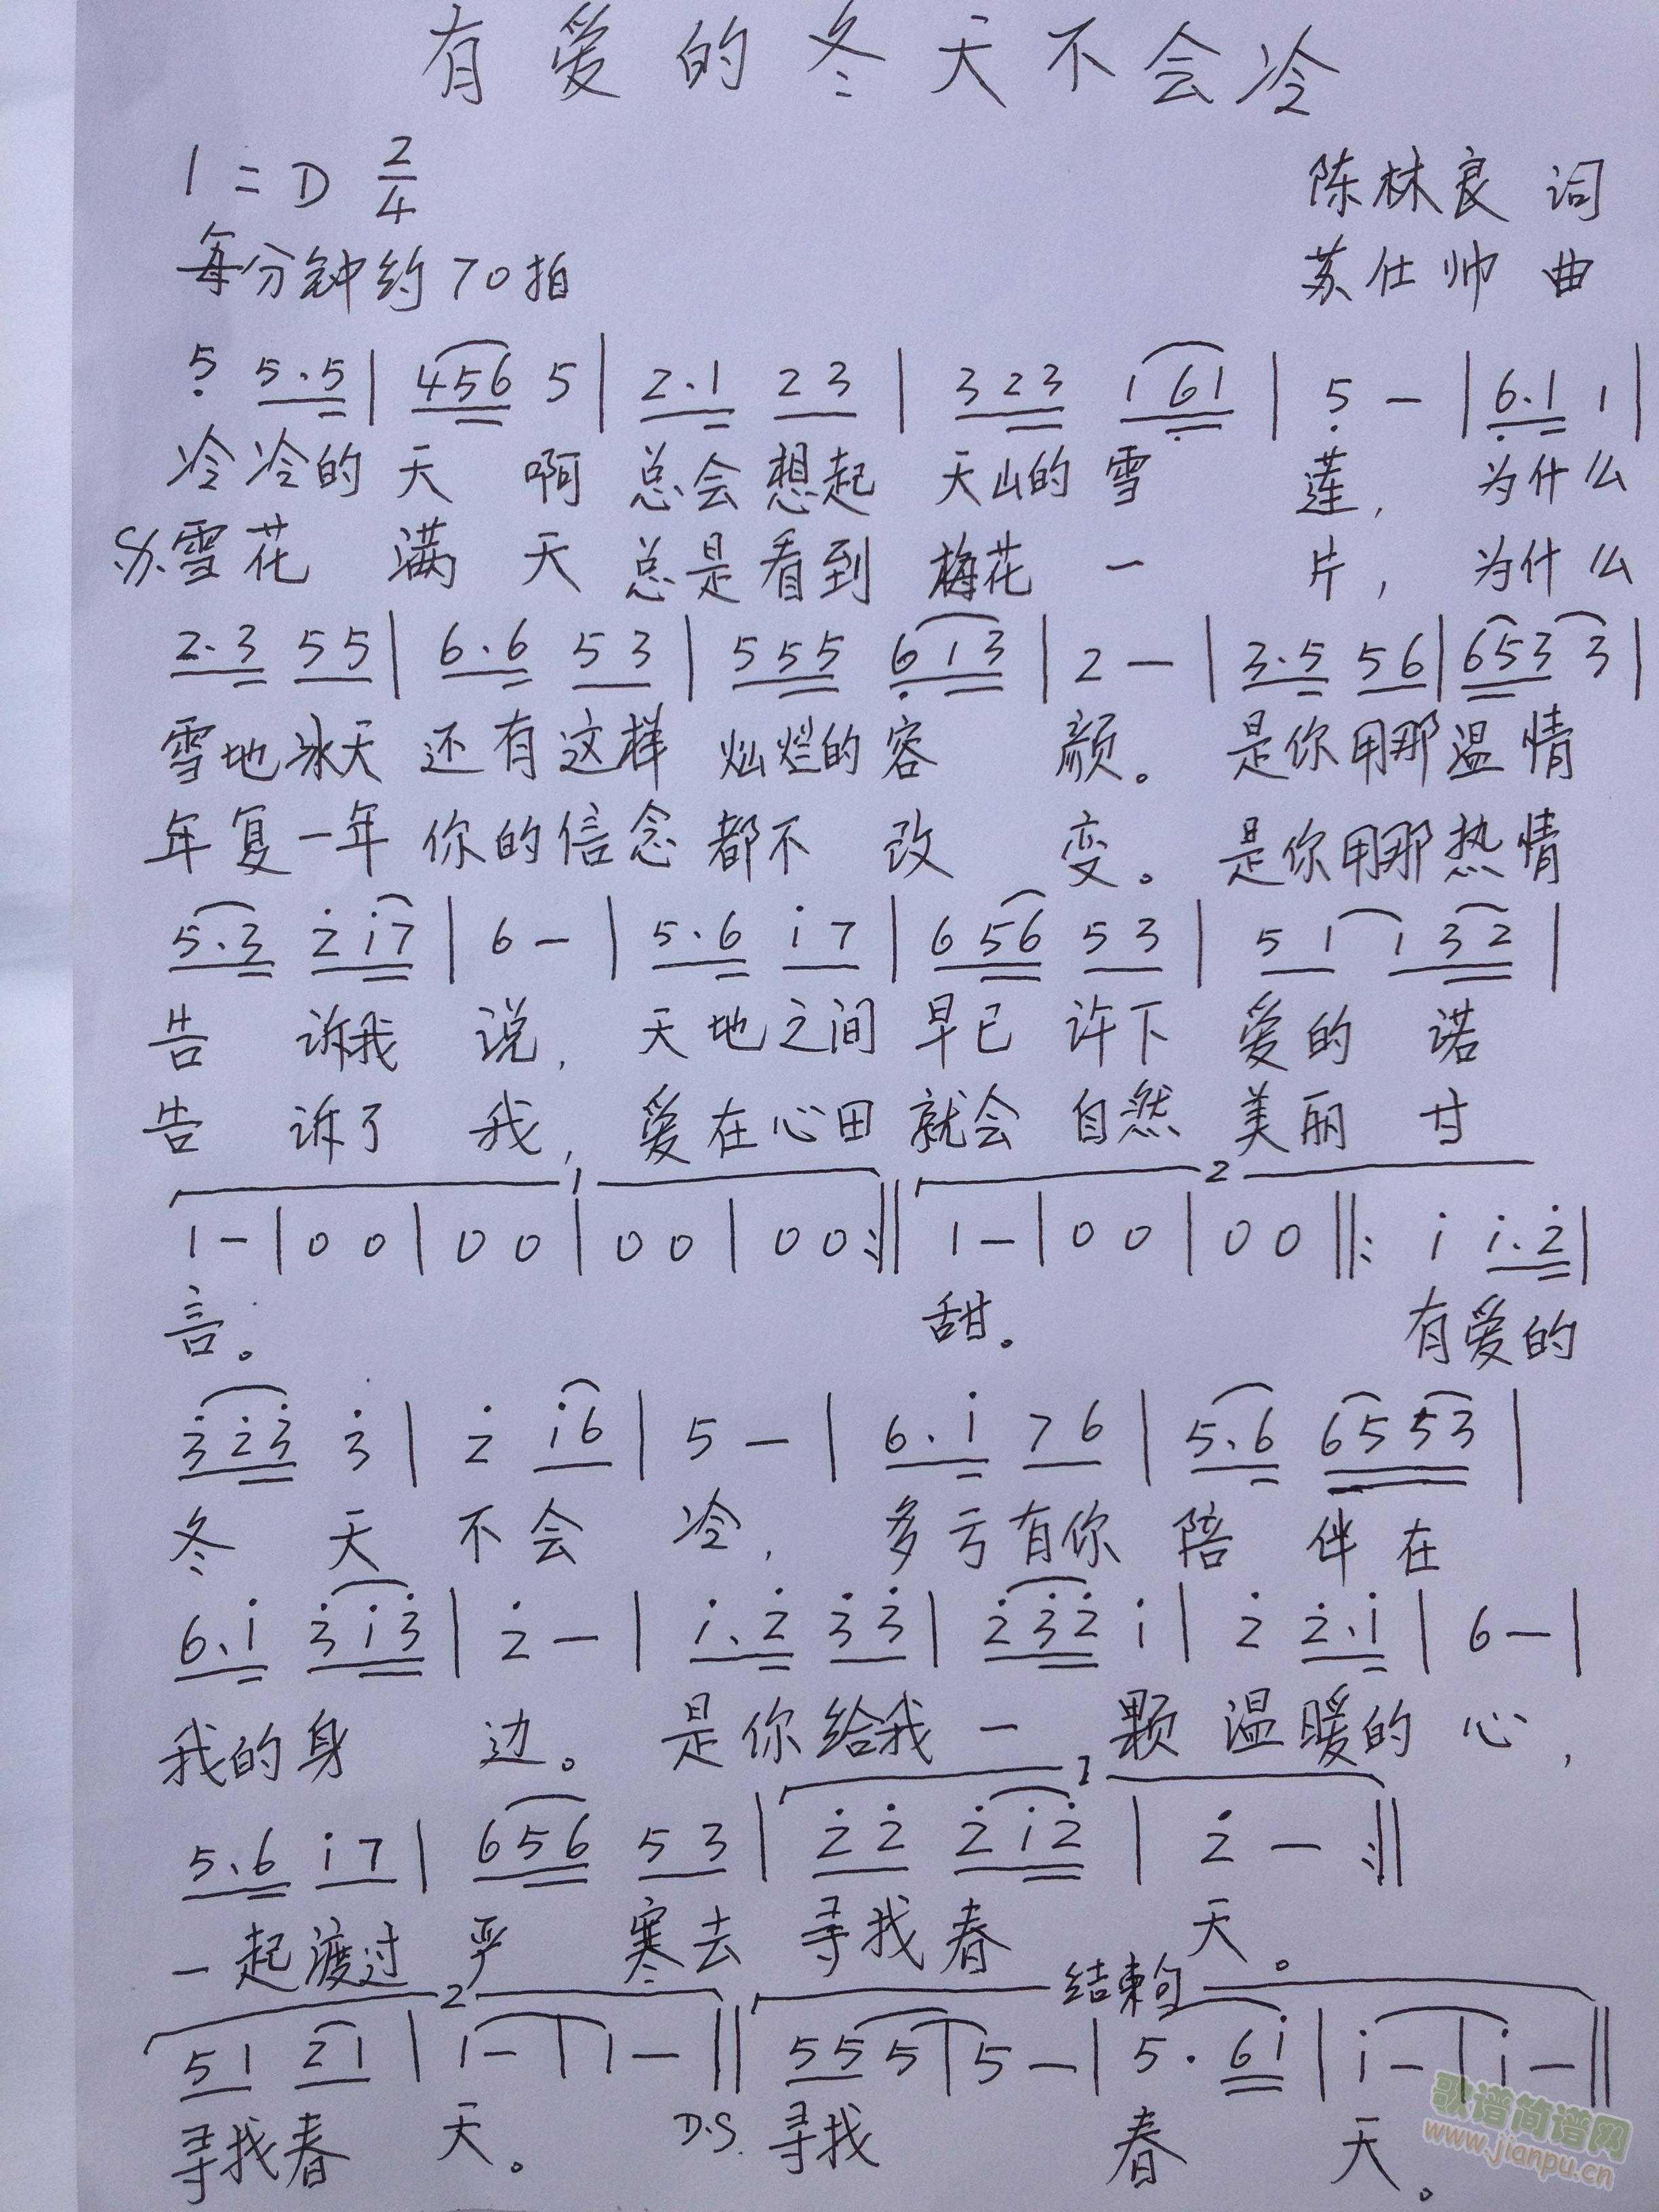 有爱的冬天不会冷
1=D 2/4
陈林良 词
每分钟约70拍
苏仕帅 曲
5 5.5 | 456 5 | 2.1 23 | 323 161 | 5 - | 6.1 1 |
冷冷的天 啊 总会想起 天山的雪 莲, 为什么
S.雪花 满 天 总是看到 梅花 一 片, 为什么
2.3 55 | 6.6 53 | 555 613 | 2 - | 3.5 56 | 653 3 |
雪地冰天 还有这样 灿烂的容 颜。 是你用那温情
年复一年 你的信念 都不 改 变。 是你用那热情
5.3 2i7 | 6 - | 5.6 i7 | 656 53 | 51 132 |
告 诉我 说, 天地之间 早已 许下 爱的 诺
告 诉了 我, 爱在心田 就会 自然 美丽 甘
1 2
1 - | 0 0 | 0 0 | 0 0 | 0 0 :‖ 1 - | 0 0 | 0 0 ‖: i i.2 |
言。 甜。 有爱的
323 3 | 2 i6 | 5 - | 6.i 76 | 5.6 6553 |
冬 天 不会 冷, 多亏有你 陪 伴在
6.i 3i3 | 2 - | i.2 33 | 232 i | 2 2.i | 6 - |
我的身 边。 是你给我 一 颗 温暖的 心,
1
5.6 i7 | 656 53 | 22 2i2 | 2 - :‖
一起渡过 严 寒去 寻找春 天。
2 结束句
51 21 | 1 - | 1 - ‖ 55 5 | 5 - | 5. 6i | i - | i - ‖
寻找春 天。 D.S. 寻找 春 天。
歌谱简谱网
www.jianpu.cn